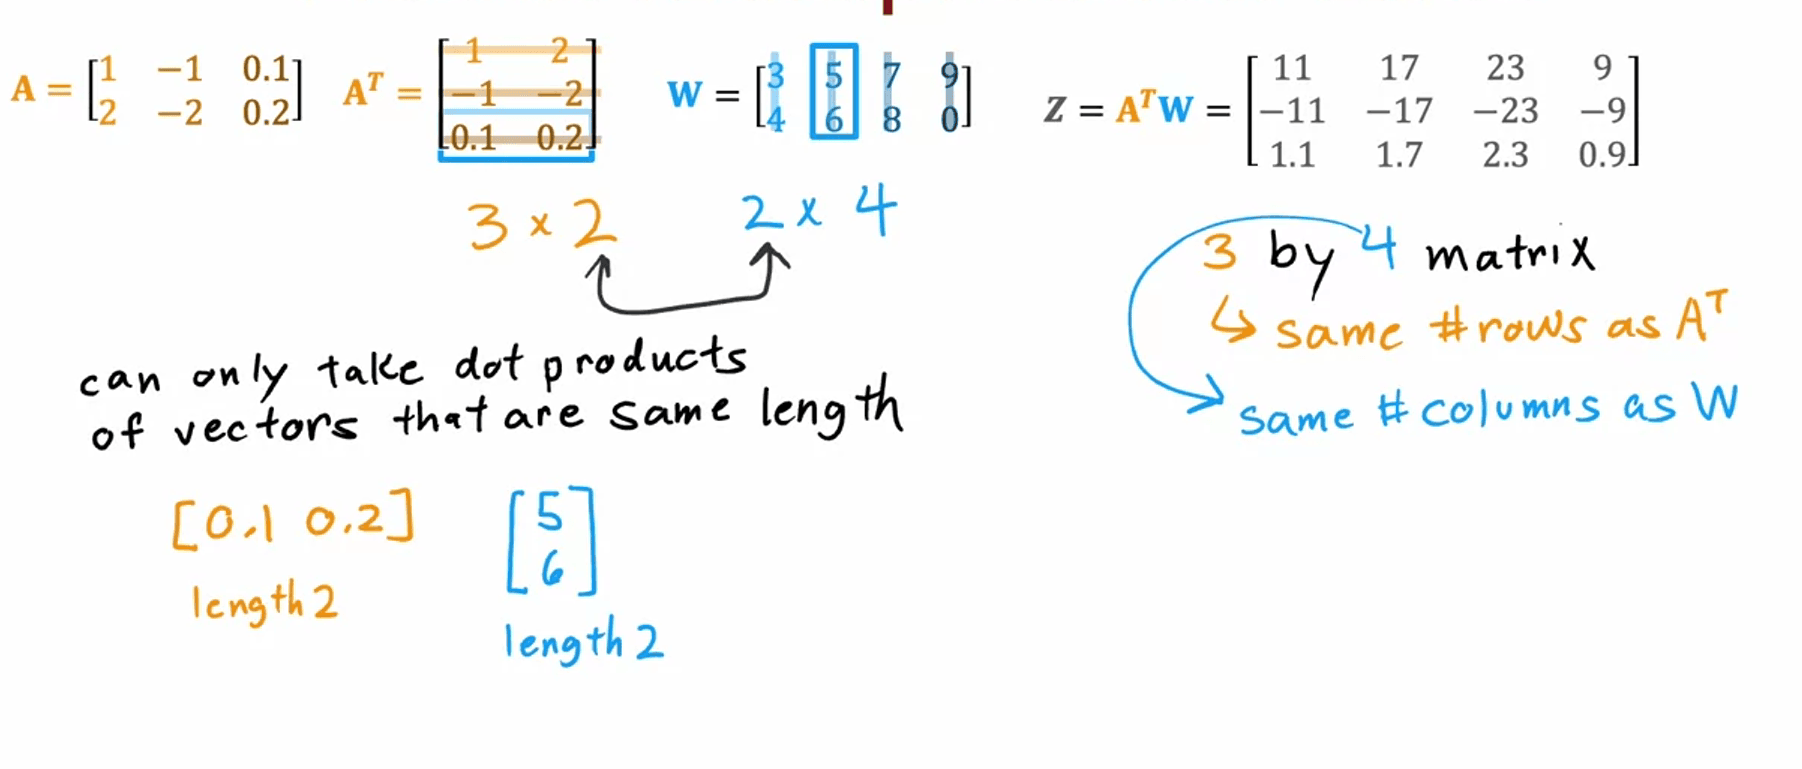 A = [1 −1 0.1
2 −2 0.2]
Aᵀ = [1 2
−1 −2
0.1 0.2]
W = [3 5 7 9
4 6 8 0]
Z = AᵀW = [11 17 23 9
−11 −17 −23 −9
1.1 1.7 2.3 0.9]
3 × 2
2 × 4
3 by 4 matrix
same # rows as Aᵀ
same # columns as W
can only take dot products
of vectors that are same length
[0.1 0.2]
length 2
[5
6]
length 2